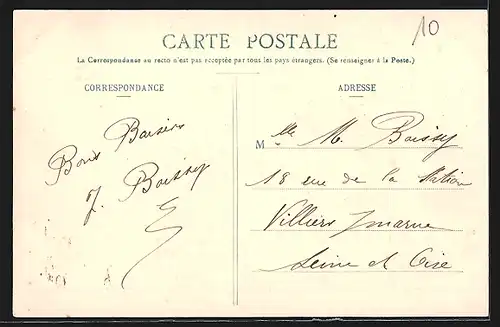 10
CARTE POSTALE
La Correspondance au recto n'est pas acceptée par tous les pays étrangers. (Se renseigner à la Poste.)
CORRESPONDANCE
Bons Baisers
J. Boissy
ADRESSE
Mlle M. Boissy
18 rue de la Station
Villiers s/ marne
Seine et Oise